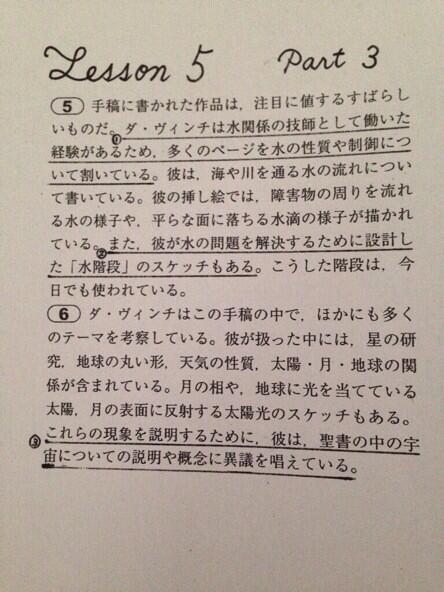 Lesson 5 Part 3
5 手稿に書かれた作品は，注目に値するすばらし
いものだ。①ダ・ヴィンチは水関係の技師として働いた
経験があるため，多くのページを水の性質や制御につ
いて割いている。彼は，海や川を通る水の流れについ
て書いている。彼の挿し絵では，障害物の周りを流れ
る水の様子や，平らな面に落ちる水滴の様子が描かれ
ている。②また，彼が水の問題を解決するために設計し
た「水階段」のスケッチもある。こうした階段は，今
日でも使われている。
6 ダ・ヴィンチはこの手稿の中で，ほかにも多く
のテーマを考察している。彼が扱った中には，星の研
究，地球の丸い形，天気の性質，太陽・月・地球の関
係が含まれている。月の相や，地球に光を当てている
太陽，月の表面に反射する太陽光のスケッチもある。
③これらの現象を説明するために，彼は，聖書の中の宇
宙についての説明や概念に異議を唱えている。